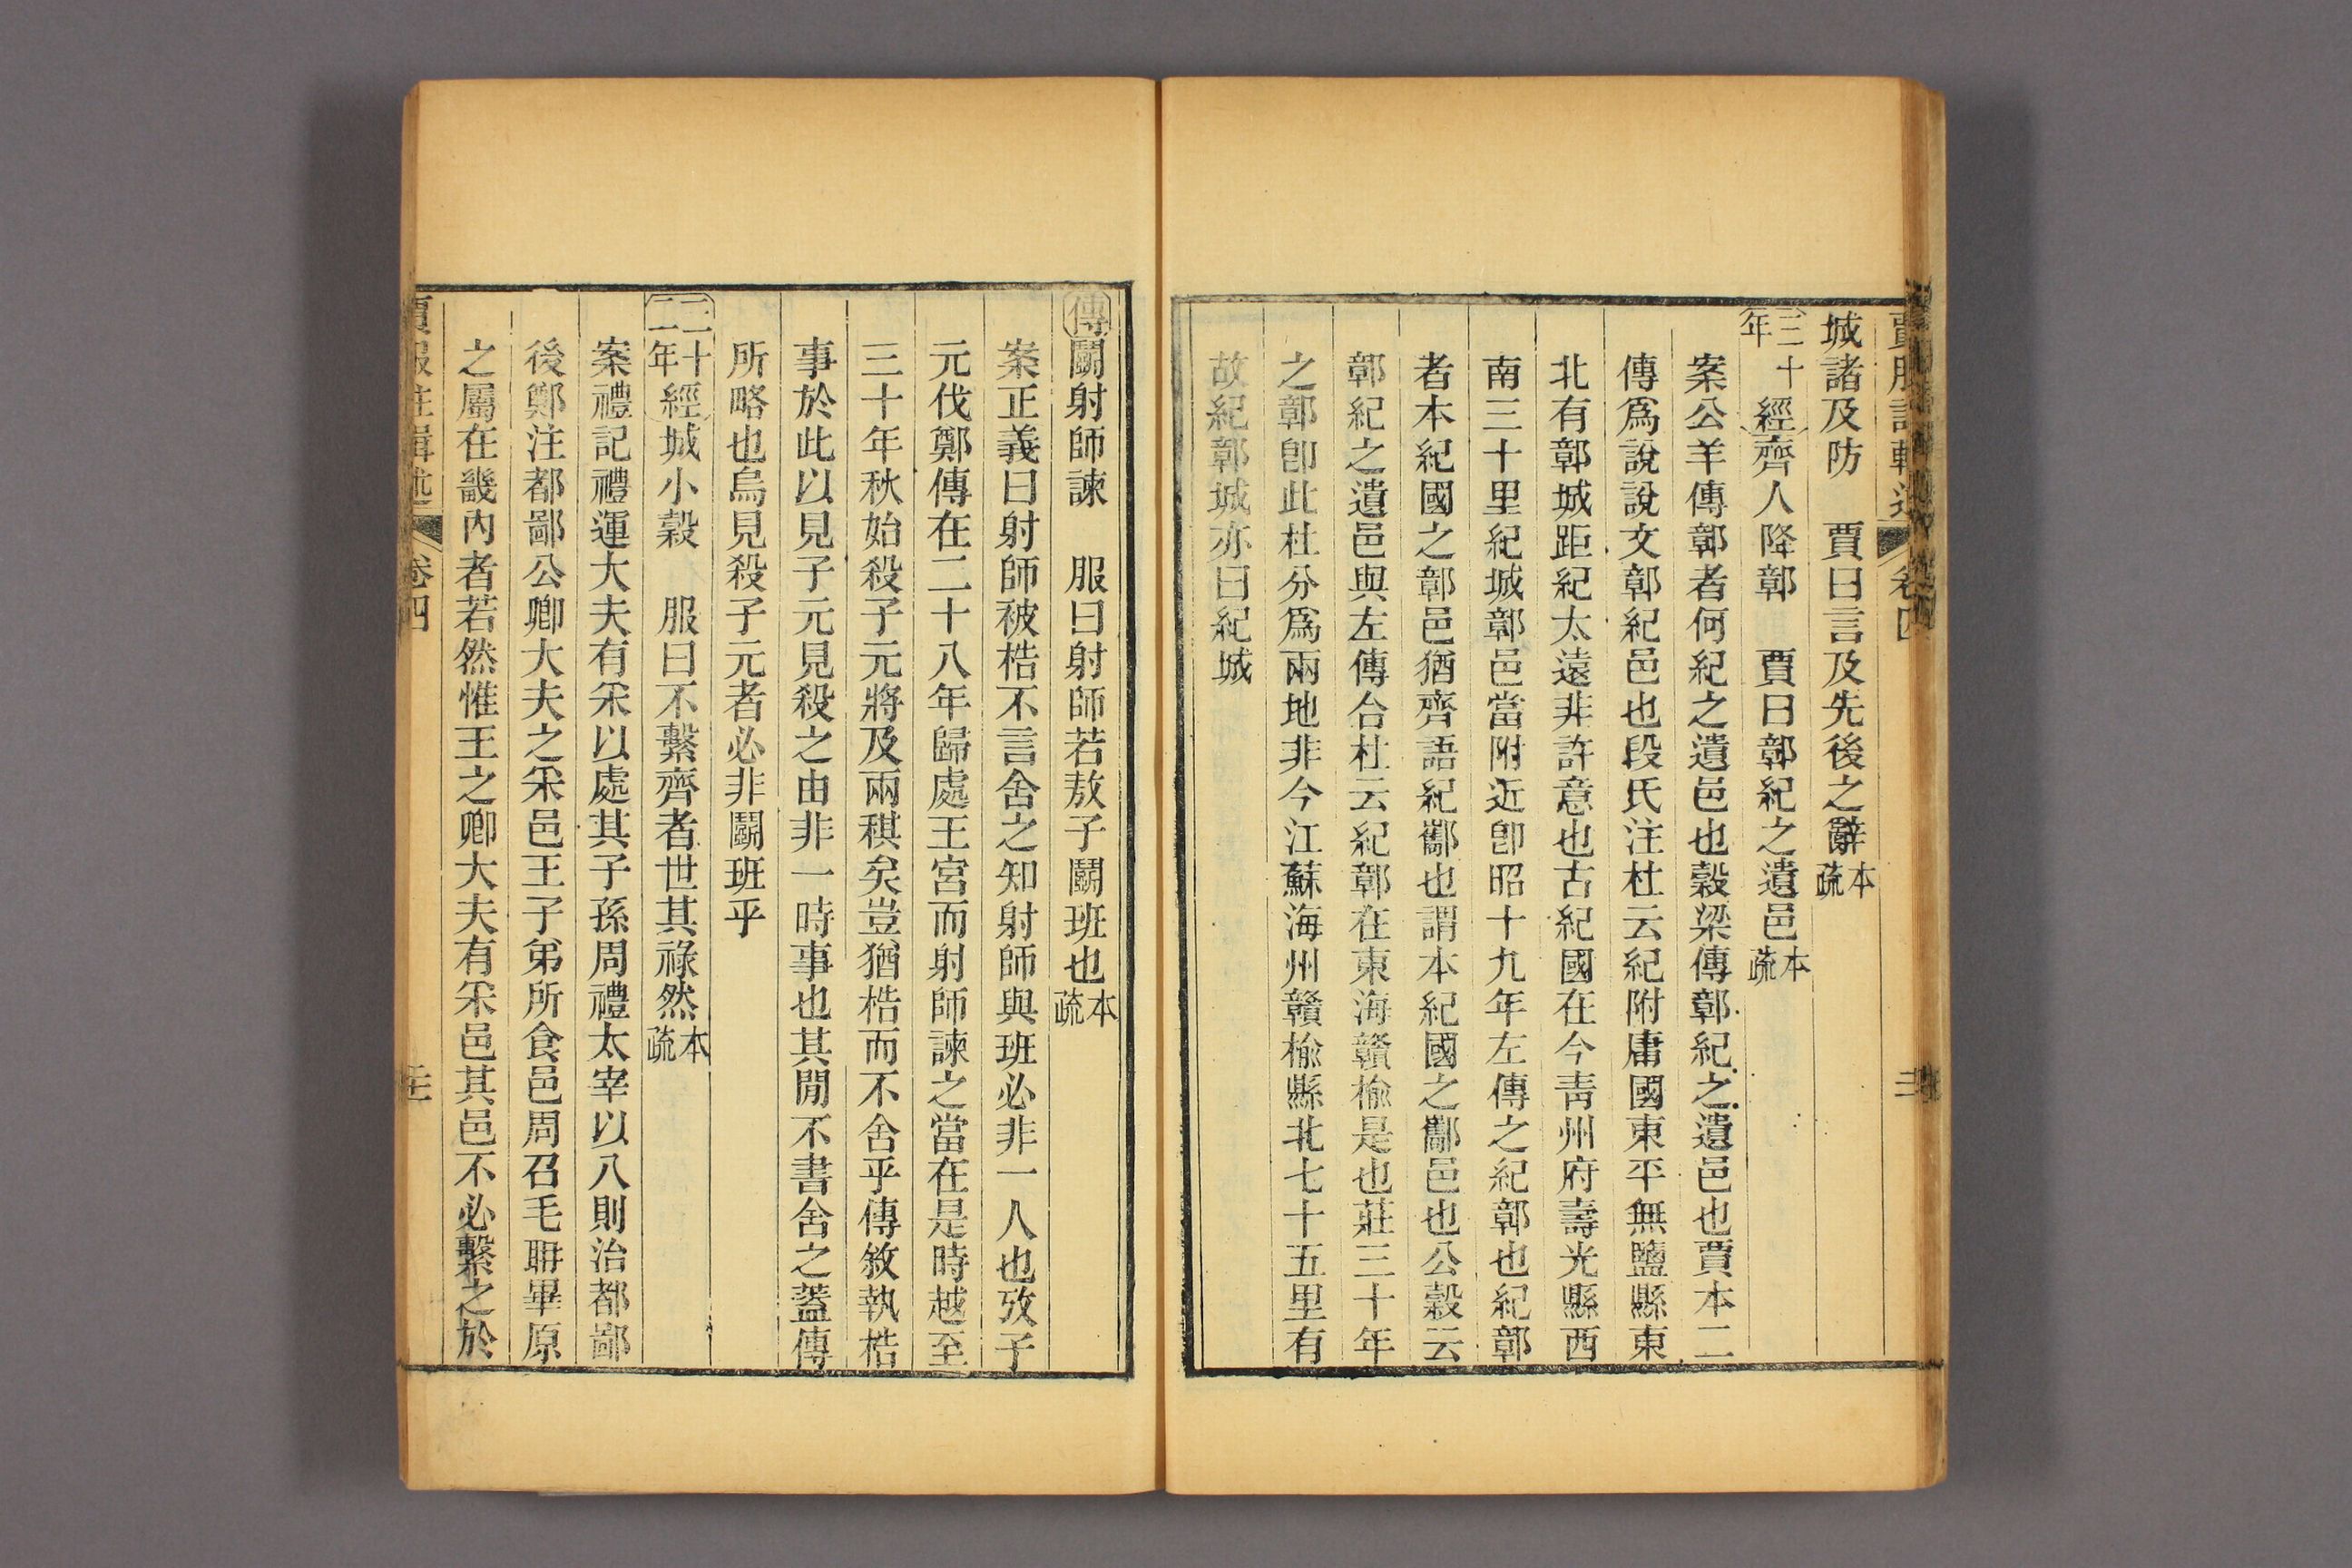 賈服注輯述 卷四 三
城諸及防 賈曰言及先後之辭本疏
三十年經齊人降鄣 賈曰鄣紀之遺邑本疏
案公羊傳鄣者何紀之遺邑也穀梁傳鄣紀之遺邑也賈本二
傳爲說說文鄣紀邑也段氏注杜云紀附庸國東平無鹽縣東
北有鄣城距紀太遠非許意也古紀國在今青州府壽光縣西
南三十里紀城鄣邑當附近卽昭十九年左傳之紀鄣也紀鄣
者本紀國之鄣邑猶齊語紀酅也謂本紀國之酅邑也公穀云
鄣紀之遺邑與左傳合杜云紀鄣在東海贛榆是也莊三十年
之鄣卽此杜分爲兩地非今江蘇海州贛榆縣北七十五里有
故紀鄣城亦曰紀城
傳鬭射師諫 服曰射師若敖子鬭班也本疏
案正義曰射師被梏不言舍之知射師與班必非一人也攷子
元伐鄭傳在二十八年歸處王宮而射師諫之當在是時越至
三十年秋始殺子元將及兩稘矣豈猶梏而不舍乎傳敘執梏
事於此以見子元見殺之由非一時事也其閒不書舍之蓋傳
所略也烏見殺子元者必非鬭班乎
三十二年經城小穀 服曰不繫齊者世其祿然本疏
案禮記禮運大夫有采以處其子孫周禮太宰以八則治都鄙
後鄭注都鄙公卿大夫之采邑王子弟所食邑周召毛聃畢原
之屬在畿內者若然惟王之卿大夫有采邑其邑不必繫之於
賈服注輯述 卷四